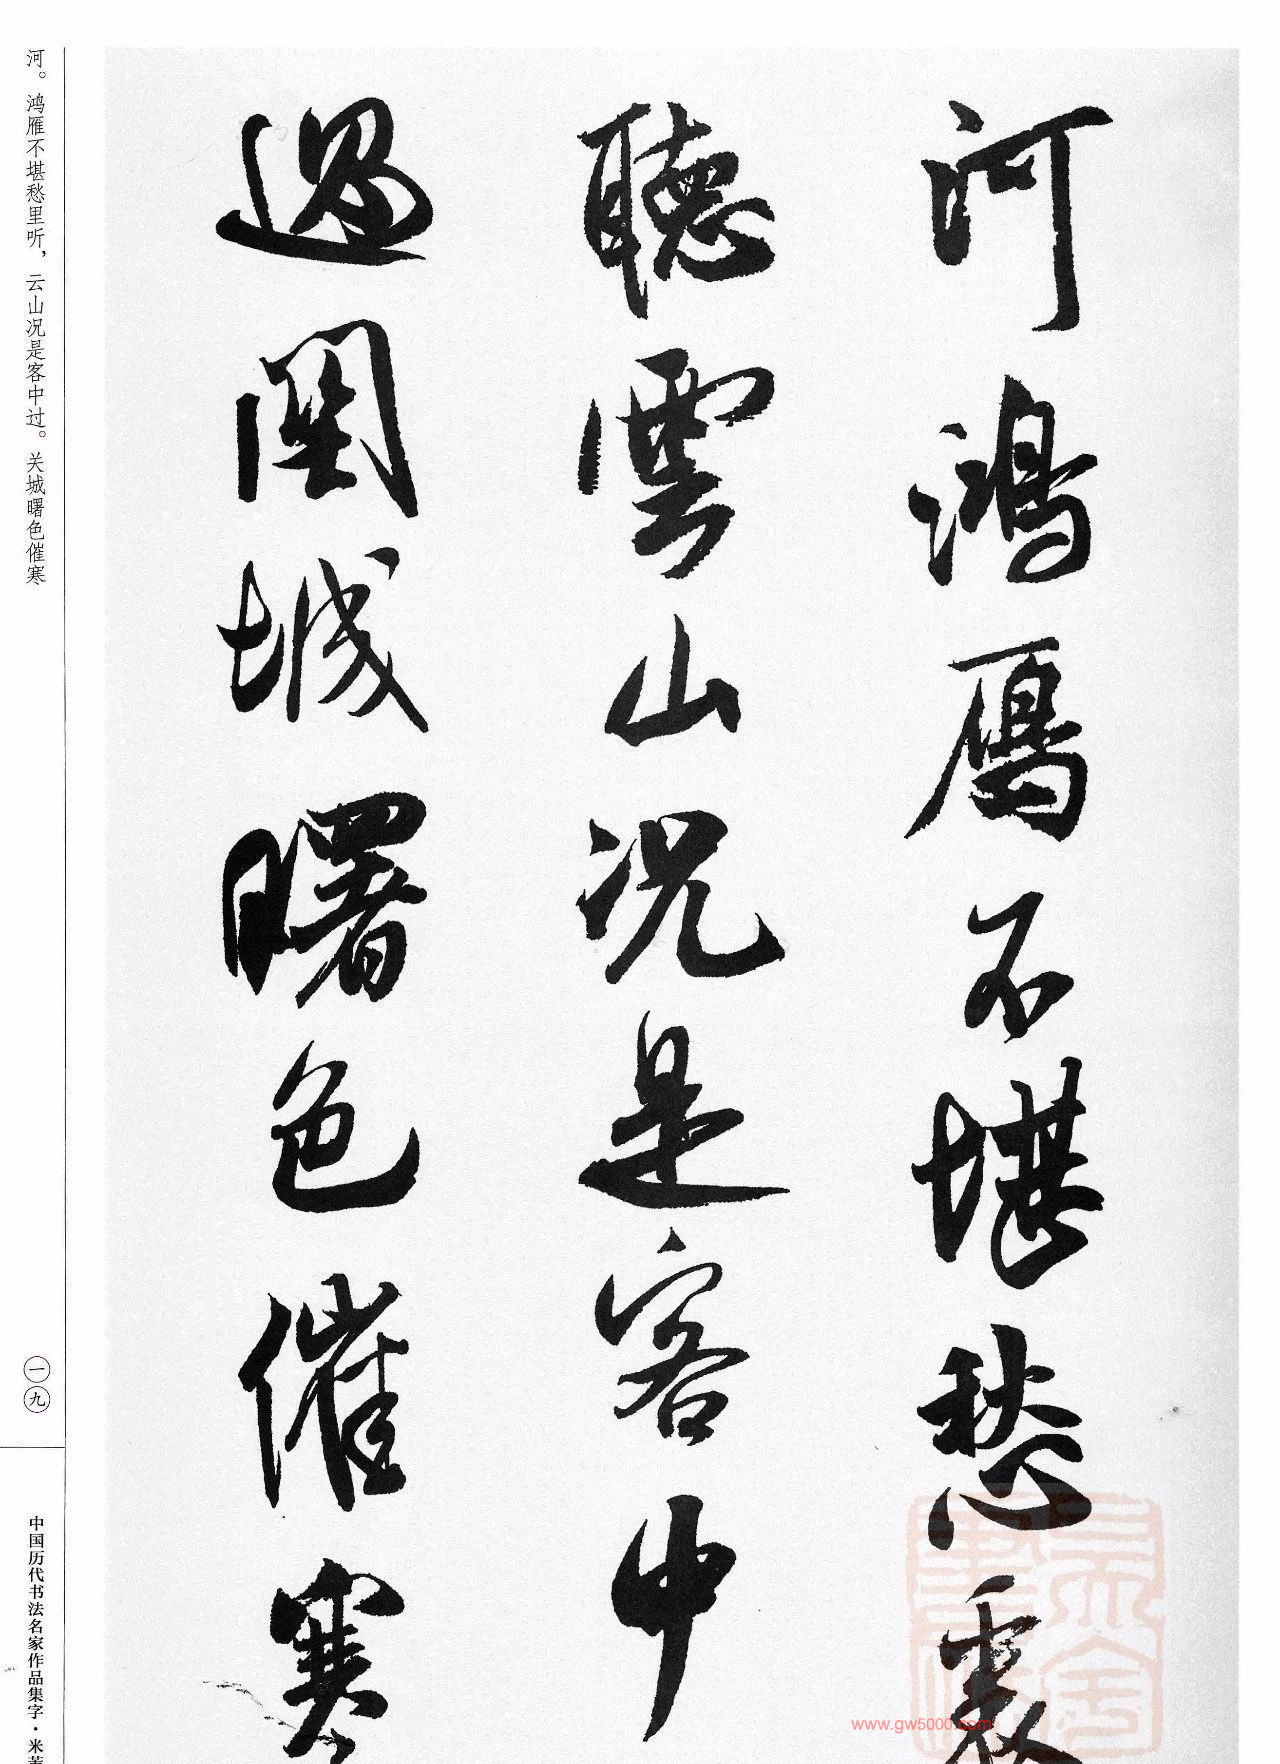 河鴻鴈不堪愁裏
聽雲山况是客中
過關城曙色催寒
河。鸿雁不堪愁里听，云山况是客中过。关城曙色催寒
一九
中国历代书法名家作品集字·米芾
www.gw5000.com